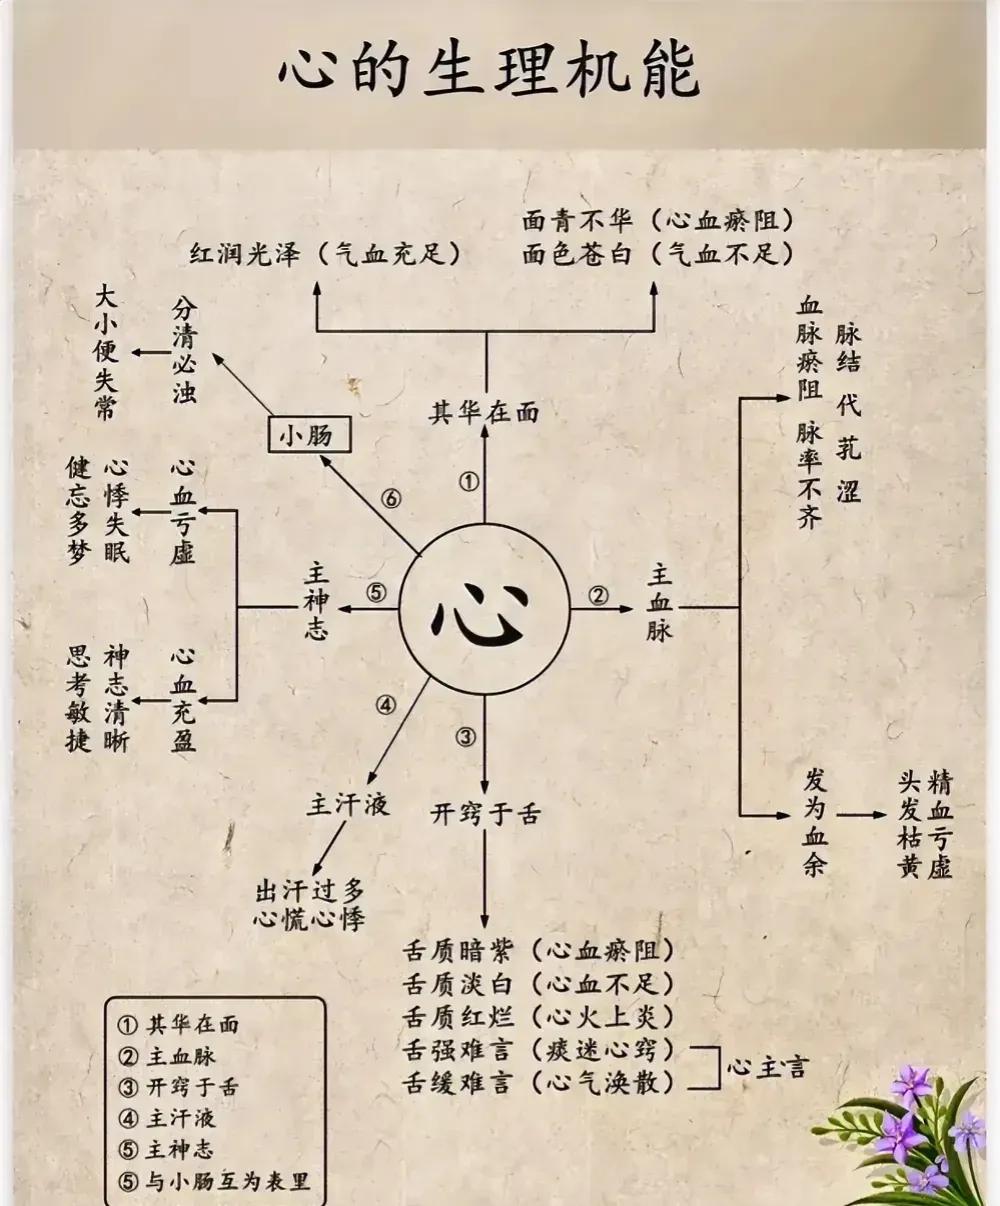 心的生理机能
面青不华（心血瘀阻）
红润光泽（气血充足）
面色苍白（气血不足）
其华在面
①
小肠
⑥
分清必浊
大小便失常
心
⑤
主神志
心血亏虚
心悸失眠
健忘多梦
心血充盈
神志清晰
思考敏捷
②
主血脉
血脉瘀阻 脉率不齐
脉结 代 乳 涩
发为血余
精血亏虚
头发枯黄
④
主汗液
出汗过多
心慌心悸
③
开窍于舌
舌质暗紫（心血瘀阻）
舌质淡白（心血不足）
舌质红烂（心火上炎）
舌强难言（痰迷心窍）
舌缓难言（心气涣散）
心主言
① 其华在面
② 主血脉
③ 开窍于舌
④ 主汗液
⑤ 主神志
⑤ 与小肠互为表里